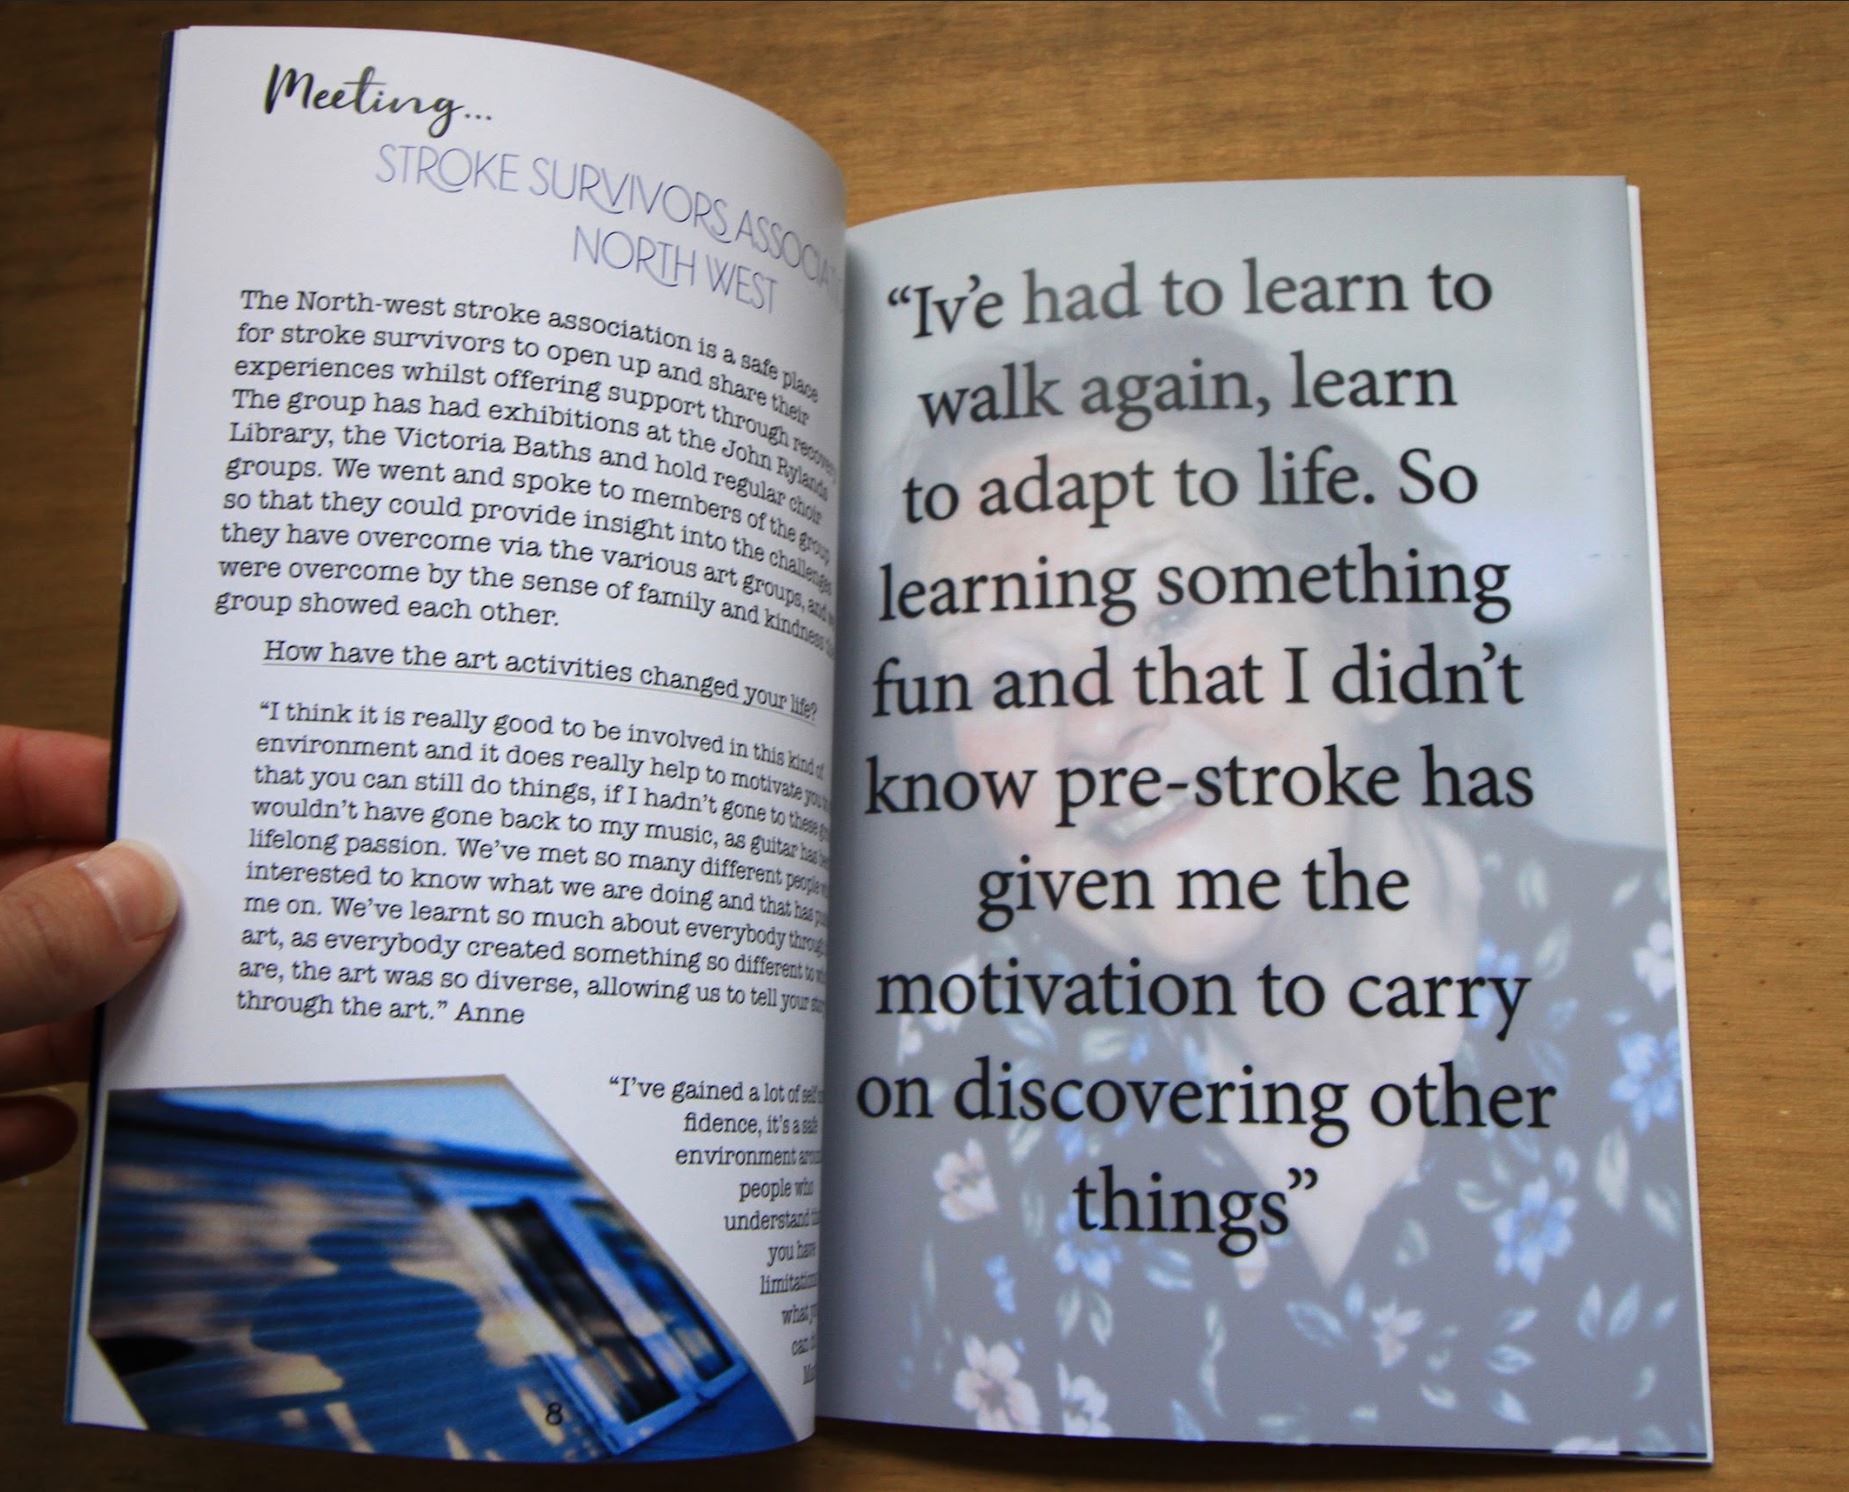 Meeting...
STROKE SURVIVORS
NORTH WEST
The North-west stroke association is a safe place
for stroke survivors to open up and share their
experiences whilst offering support through
The group has had exhibitions at the John Rylands
Library, the Victoria Baths and hold regular choir
groups. We went and spoke to members of the group
so that they could provide insight into the challenges
they have overcome via the various art groups, and
were overcome by the sense of family and kindness
group showed each other.
How have the art activities changed your life?
“I think it is really good to be involved in this kind of
environment and it does really help to motivate you
that you can still do things, if I hadn't gone to these
wouldn't have gone back to my music, as guitar has
lifelong passion. We've met so many different people
interested to know what we are doing and that has
me on. We've learnt so much about everybody
art, as everybody created something so different to
are, the art was so diverse, allowing us to tell your
through the art.” Anne
“I've gained a lot of
fidence, it's a safe
environment
people who
understand
you have
what
can
8
“Iv'e had to learn to
walk again, learn
to adapt to life. So
learning something
fun and that I didn't
know pre-stroke has
given me the
motivation to carry
on discovering other
things”